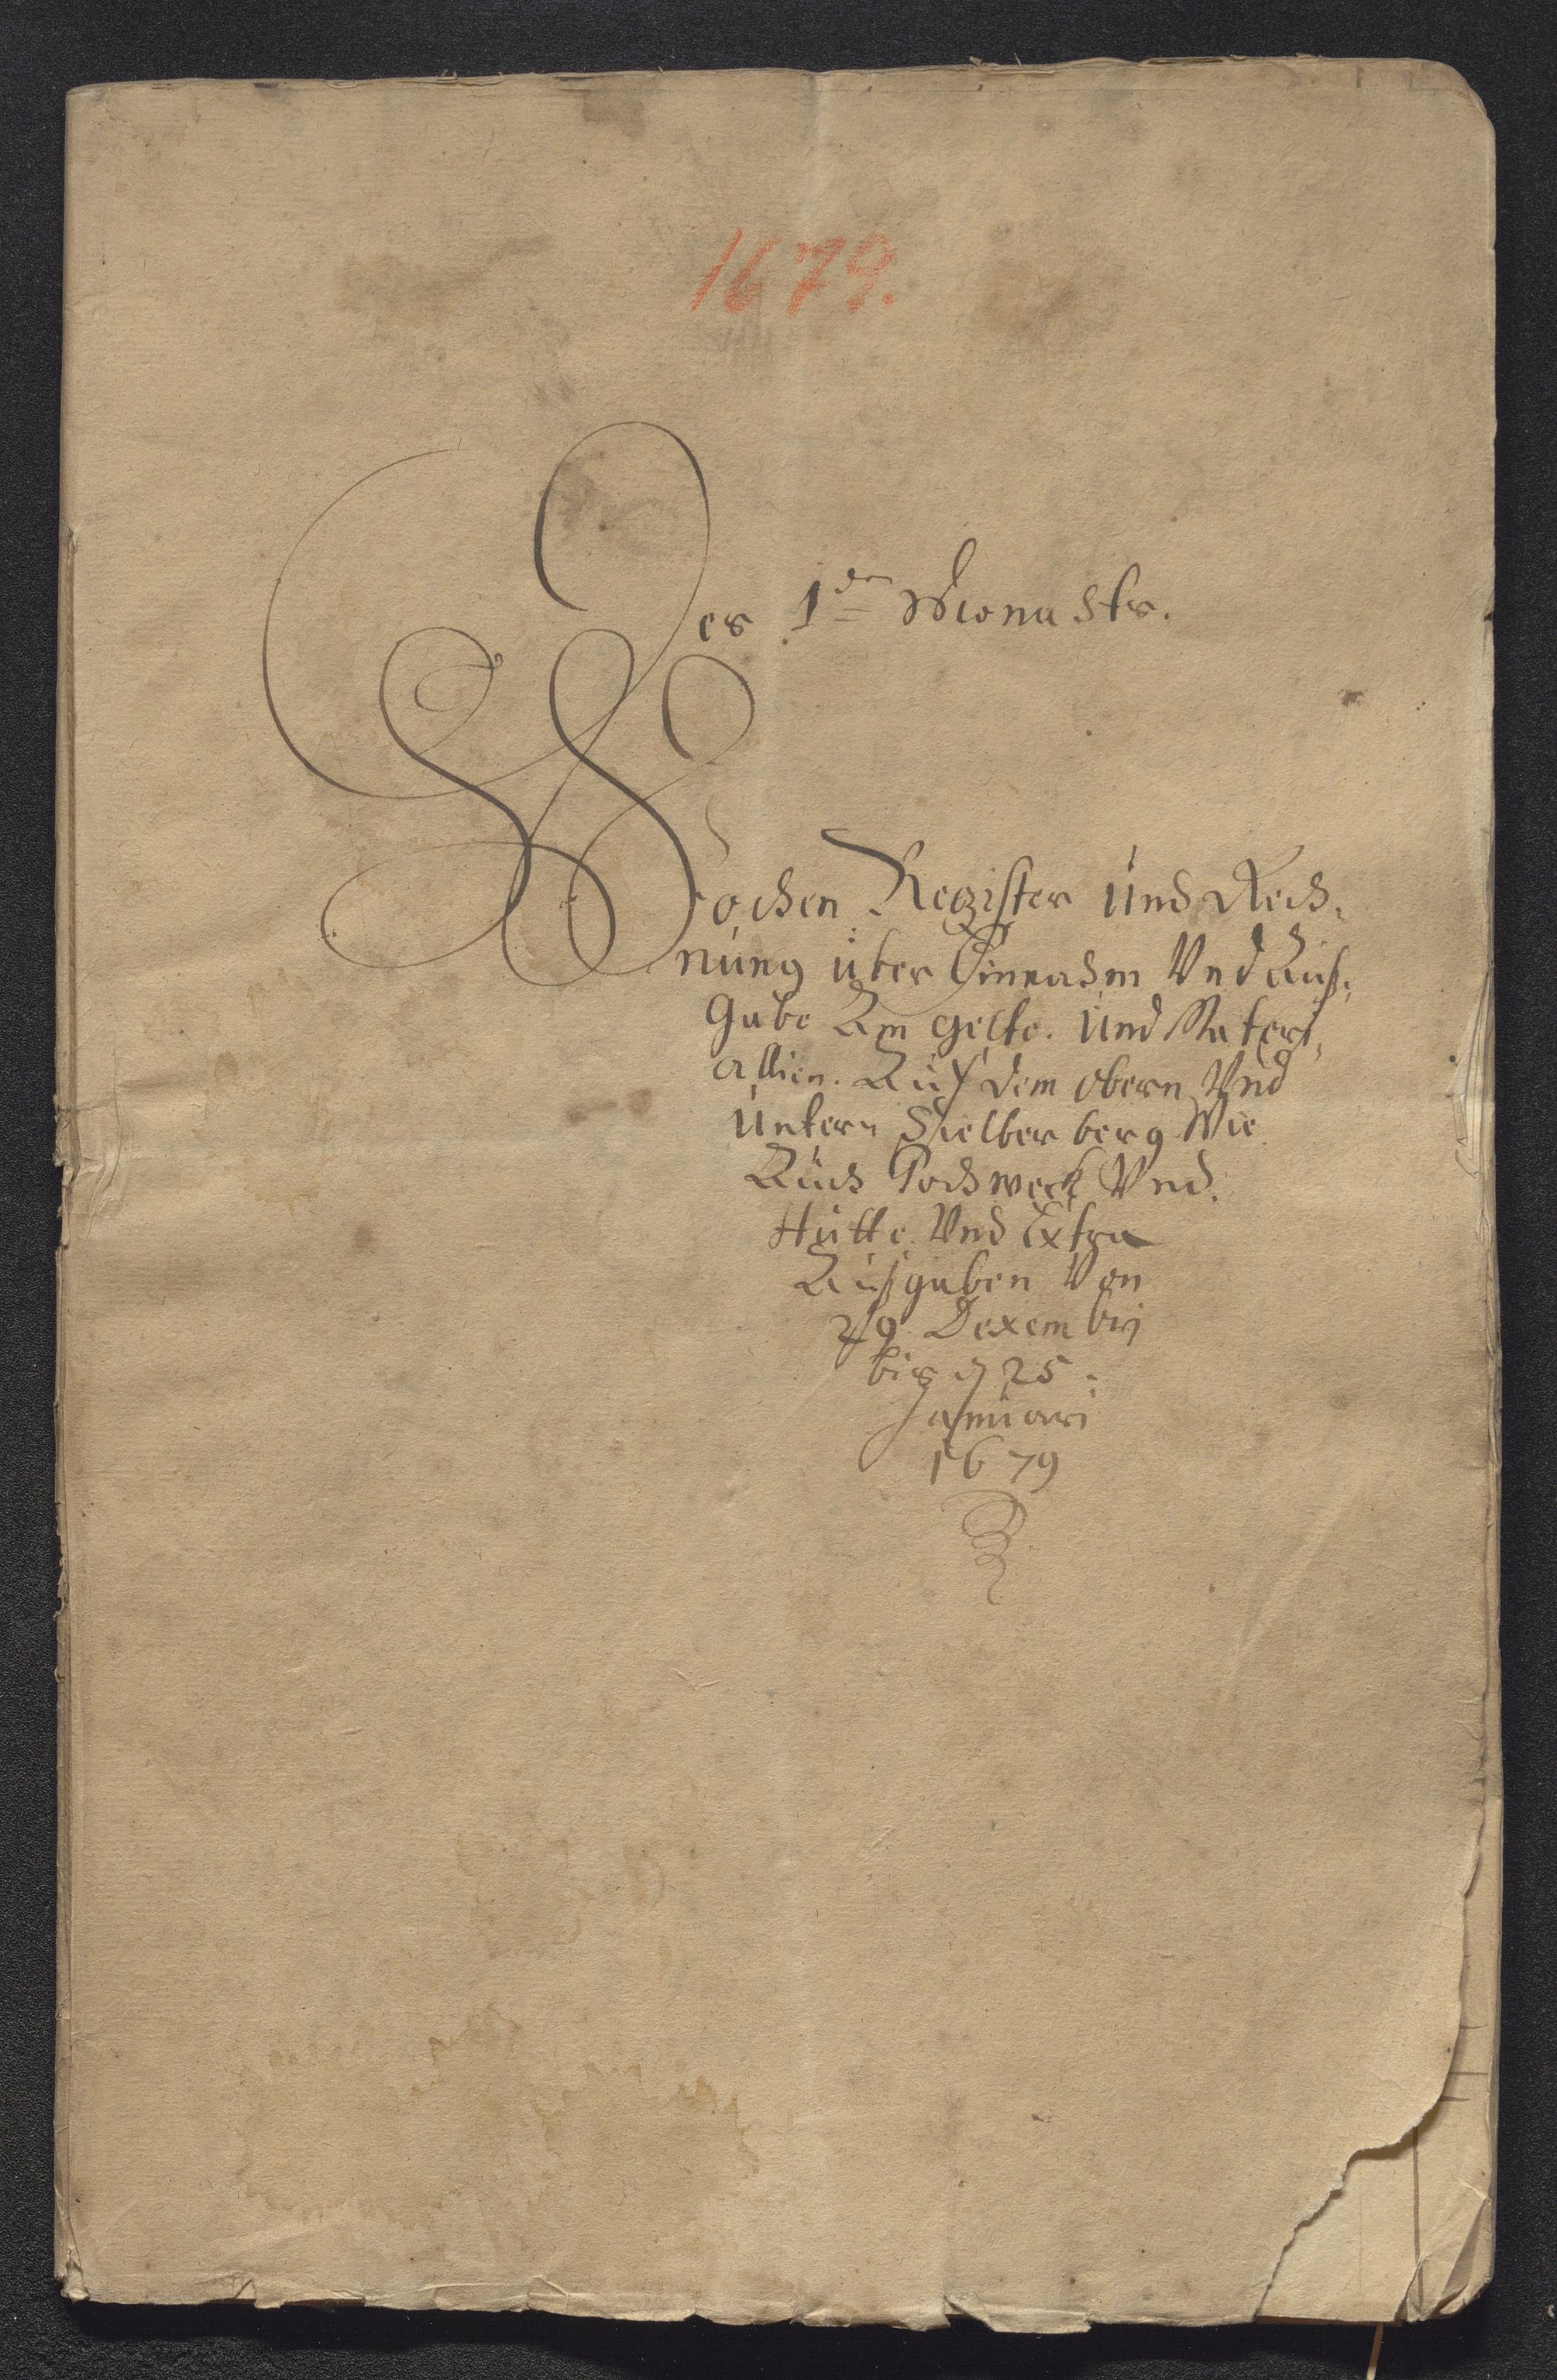 1679.
Des 1ten Monasts.
Wochen Register und Rech,
nung über Einnahm Und Auß,
Gabe An gelte. Und Materi,
allien. Auf dem obern Und
Untern Sielber berg Wie
Auch Pochwerck Und.
Hütte. Und Extra
Außgaben Von
29 Dexembrj
bis d 25.
Januari
1679